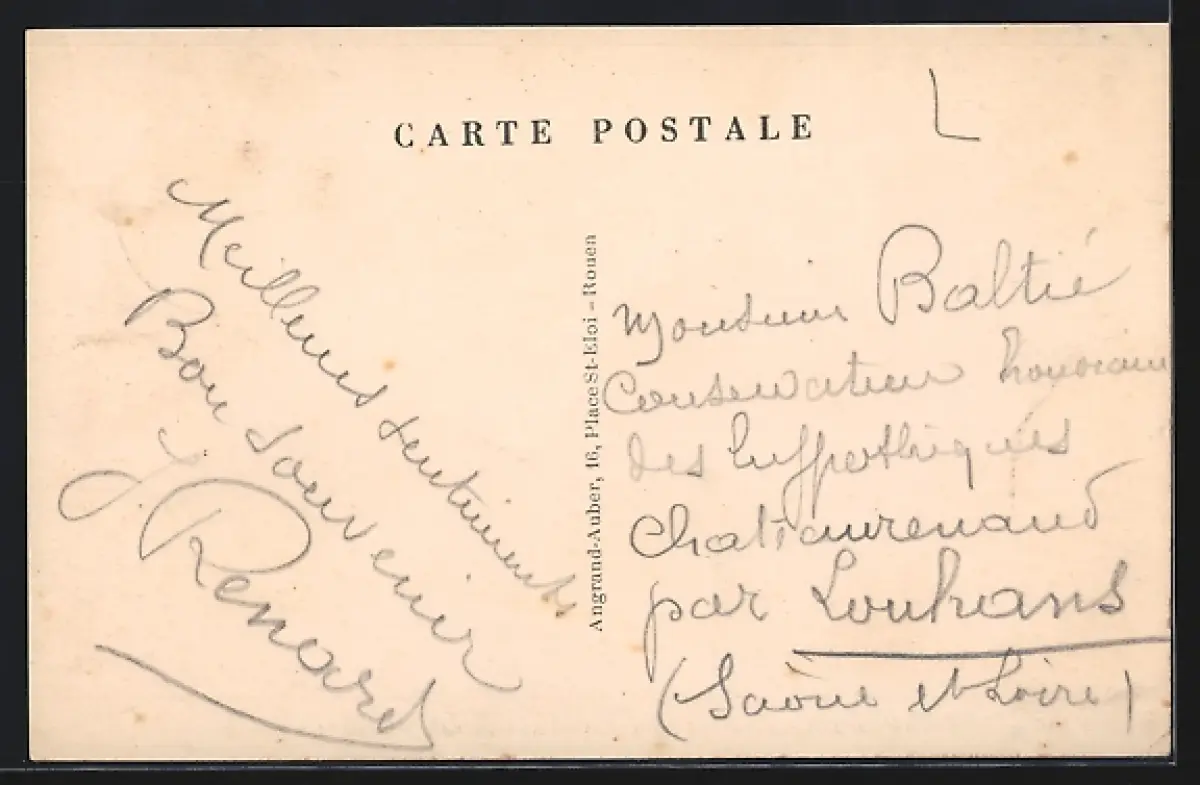 CARTE POSTALE
L
Meilleurs sentiments
Bon souvenir
J. Renard
Angrand-Auber, 16, Place St-Eloi - Rouen
Monsieur Baltié
Conservateur honoraire
des hyppothèques
Chateaurenaud
par Louhans
(Saône et Loire)